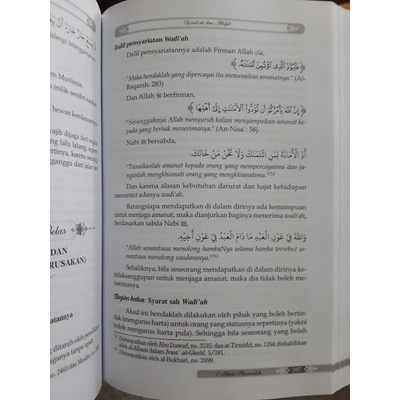 Wadi'ah dan Itlaf
Dalil pensyariatan Wadi'ah
Dalil pensyariatannya adalah Firman Allah
فَلْيُؤَدِّ الَّذِي اؤْتُمِنَ أَمَانَتَهُ
"Maka hendaklah yang dipercayai itu menunaikan amanatnya." (Al-
Baqarah: 283)
Dan Allah ﷻ berfirman,
إِنَّ اللَّهَ يَأْمُرُكُمْ أَنْ تُؤَدُّوا الْأَمَانَاتِ إِلَى أَهْلِهَا
"Sesungguhnya Allah menyuruh kalian menyampaikan amanat ke-
pada yang berhak menerimanya." (An-Nisa`: 58).
Nabi ﷺ bersabda,
أَدِّ الْأَمَانَةَ لِمَنِ ائْتَمَنَكَ وَلَا تَخُنْ مَنْ خَانَكَ.
"Tunaikanlah amanat kepada orang yang mempercayaimu dan ja-
nganlah mengkhianati orang yang mengkhianatimu."
Dan karena alasan kebutuhan darurat dan hajat kehidupan
menuntut adanya wadi'ah.
Barangsiapa mendapatkan di dalam dirinya ada kemampuan
untuk menjaga amanat, maka dianjurkan baginya menerima wadi'ah,
hal tersebut berdasarkan sabda Nabi ﷺ,
وَاللَّهُ فِي عَوْنِ الْعَبْدِ مَا دَامَ الْعَبْدُ فِي عَوْنِ أَخِيْهِ.
"Allah senantiasa menolong hambaNya selama hamba tersebut se-
nantiasa menolong saudaranya."
Sebaliknya, bila seseorang mendapatkan di dalam dirinya ke-
tidaksanggupan untuk menjaga amanat, maka dia tidak boleh me-
nerimanya.
Bagian kedua: Syarat sah Wadi'ah
Akad ini hendaklah dilakukan oleh pihak yang boleh bertin-
dak (mengurus harta) untuk orang yang statusnya sepertinya (yakni,
boleh mengurus harta pula). Sehingga bila seseorang yang boleh
Diriwayatkan oleh Abu Dawud, no. 3535; dan at-Tirmidzi, no. 1264; dishahihkan
oleh al-Albani dalam Irwa` al-Ghalil, 5/381.
Diriwayatkan oleh al-Bukhari, no. 2699.
Muslimin.
milik sendiri
hewan kendaraan
wajib dijaga dari
lalu lalang, seperti
sepertinya, karena
Belas
DAN
(RUSAKAN)
atannya
yang ditaruh oleh pemilik
no. 2460 dan Muslim, no.